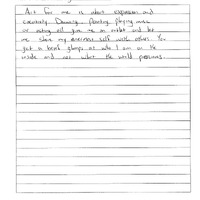 Art for me is about expression and
creativity. Dancing, Painting, playing music
or acting all give me an outlet and let
me share my awesome self with others. You
get a brief glimpse at who I am on the
inside and not what the world presumes.